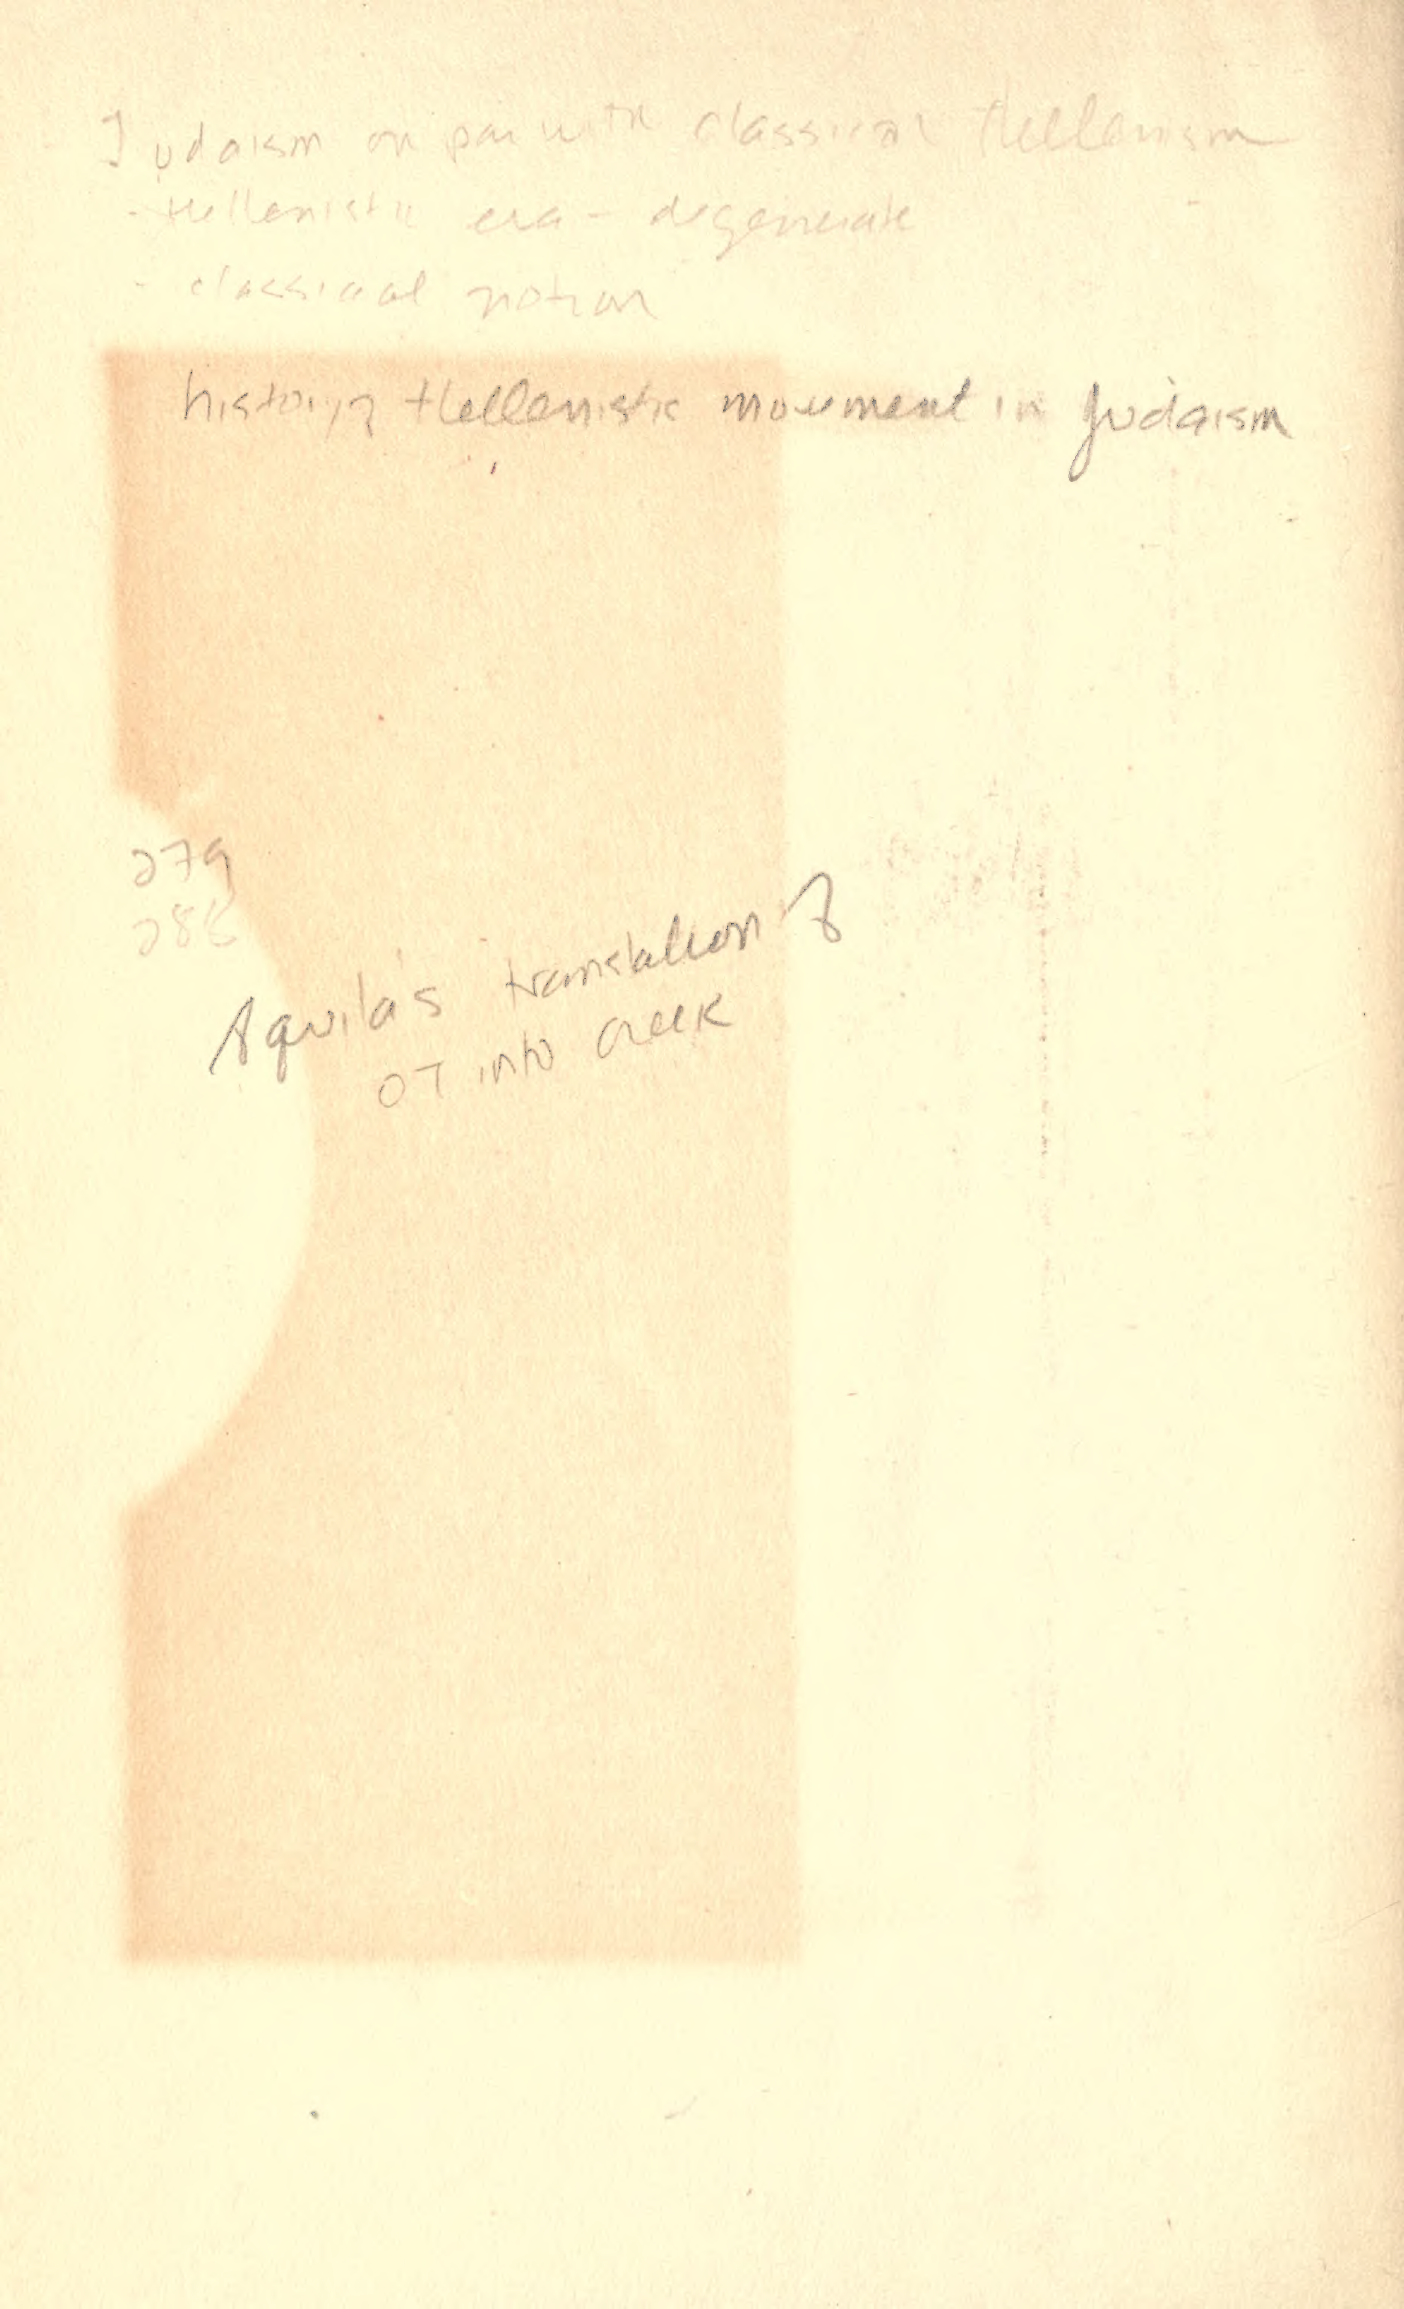 Judaism on par with classical Hellenism
- Hellenistic era - degenerate
- classical notion
history of Hellenistic movement in Judaism
279
288
Aquila's translation of
OT into Greek